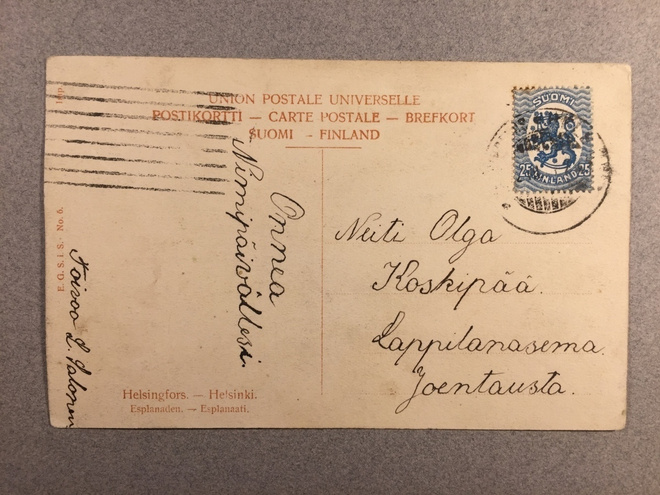 UNION POSTALE UNIVERSELLE
POSTIKORTTI — CARTE POSTALE — BREFKORT
SUOMI - FINLAND
SUOMI
25 FINLAND 25
Onnea
Nimipäivällesi.
Neiti Olga
Koskipää.
Lappilanasema.
Joentausta.
Toivoo L Salonen
E. O. S. I S. - No. 6.
Helsingfors. — Helsinki.
Esplanaden. — Esplanaati.